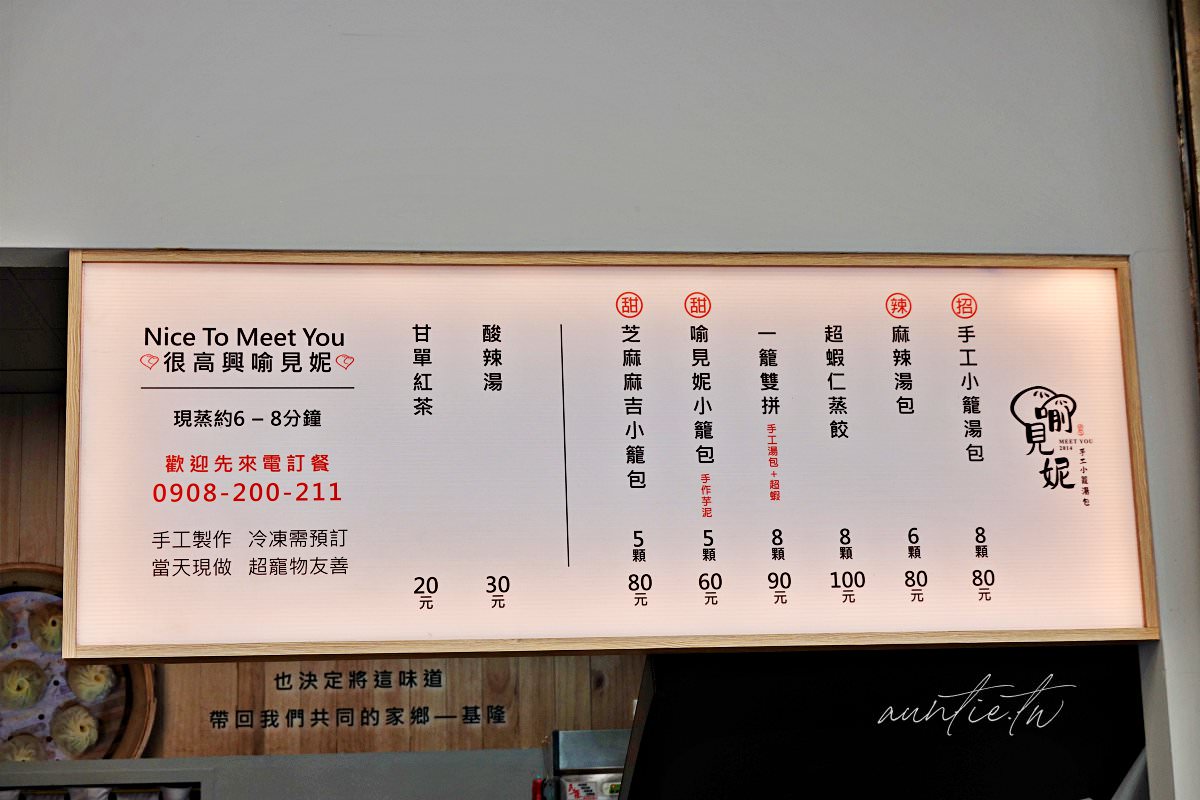 喻見妮
MEET YOU
2014
手工小籠湯包
招
手工小籠湯包
8顆
80元
辣
麻辣湯包
6顆
80元
超蝦仁蒸餃
8顆
100元
一籠雙拼
手工湯包+超蝦
8顆
90元
甜
喻見妮小籠包
手作芋泥
5顆
60元
甜
芝麻麻吉小籠包
5顆
80元
酸辣湯
30元
甘單紅茶
20元
Nice To Meet You
很高興喻見妮
現蒸約6 – 8分鐘
歡迎先來電訂餐
0908-200-211
手工製作 冷凍需預訂
當天現做 超寵物友善
也決定將這味道
帶回我們共同的家鄉—基隆
auntie.tw